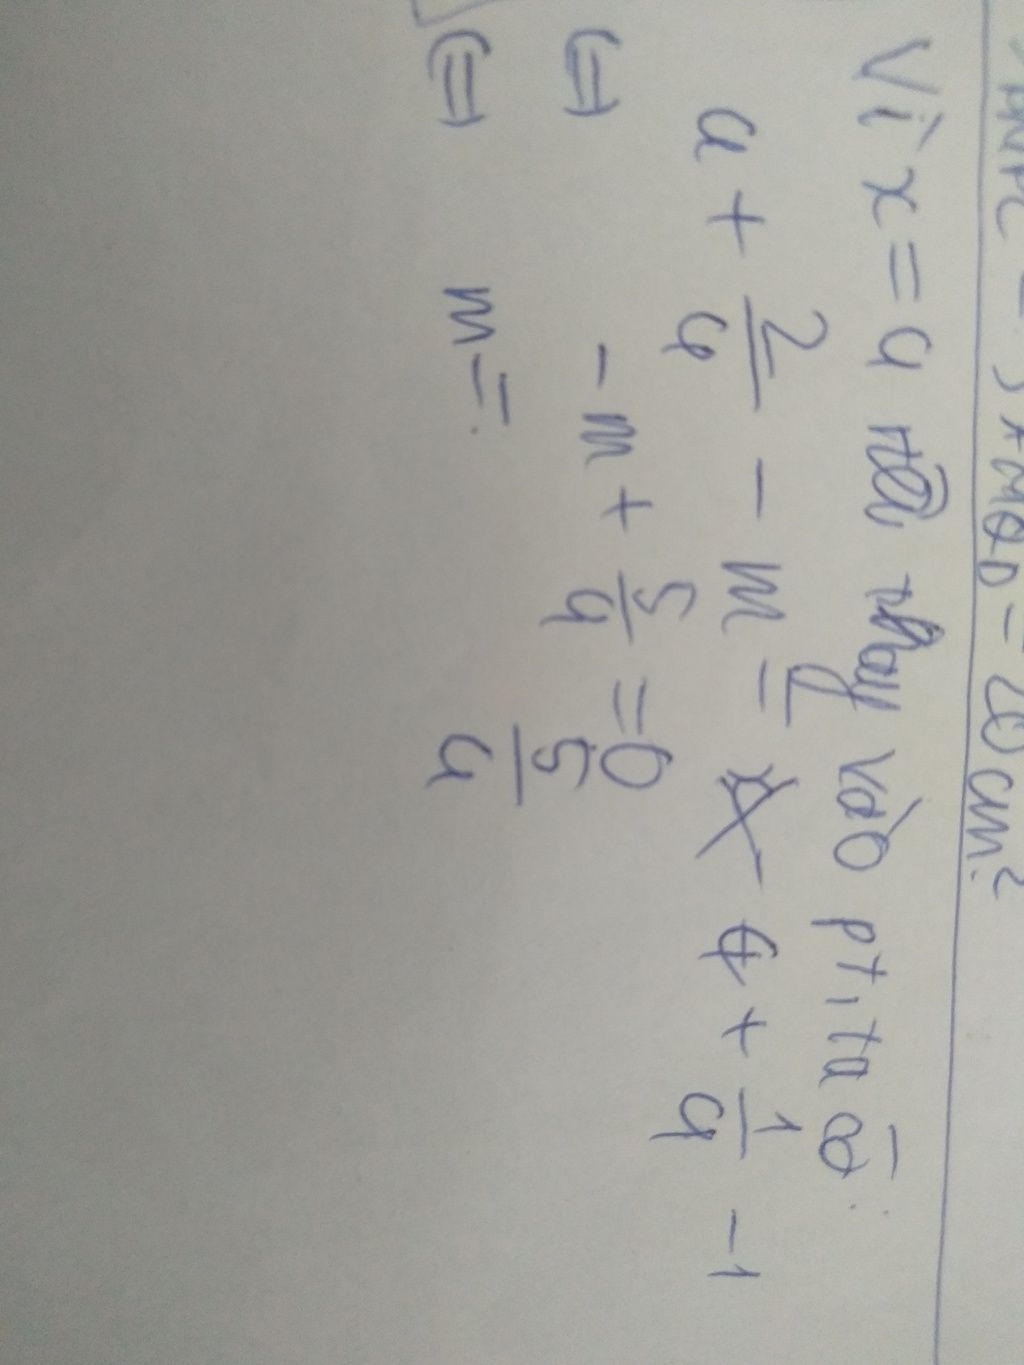 = 20 cm²
Vì x = 4 nên thay vào pt, ta có:
4 + 2/4 - m = 4 + 1/4 - 1
⇔ - m + 5/4 = 0
⇔ m = 5/4